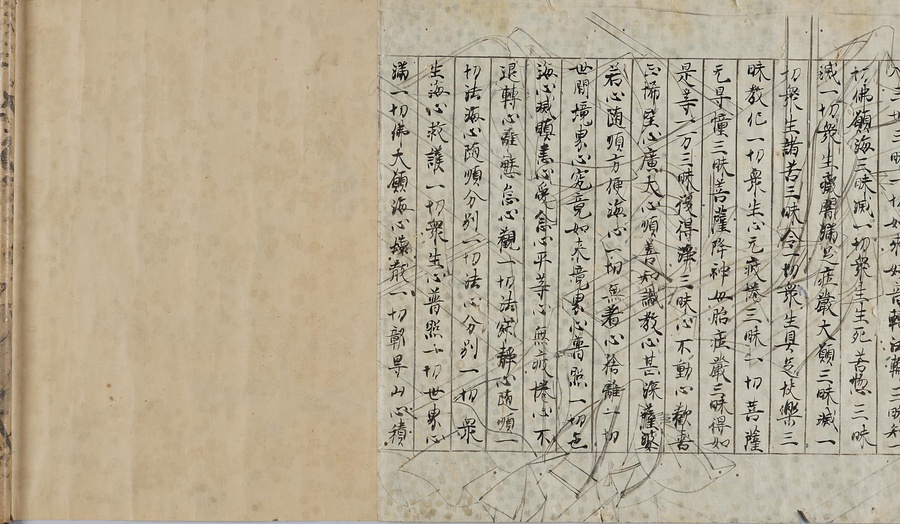 切佛願海三昧滅一切衆生生死苦惱三昧
滅一切衆生癡闇滿足莊嚴大願三昧滅一
切衆生諸苦三昧令一切衆生具足快樂三
昧教化一切衆生心无疲惓三昧一切菩薩
无㝵幢三昧菩薩降神母胎莊嚴三昧得如
是等一万三昧復得淨三昧心不動心歡喜
心悕望心廣大心順善知識教心甚深薩婆
若心随順方便海心一切無著心捨離一切
世間境界心究竟如来境界心普照一切色
海心滅瞋恚心受念心平等心無疲惓心不
退轉心離懈怠心觀一切法寂静心随順一
切法海心随順分別一切法心分別一切衆
生海心救護一切衆生心普照一切世界心
滿一切佛大願海心壊散一切鄣㝵山心積